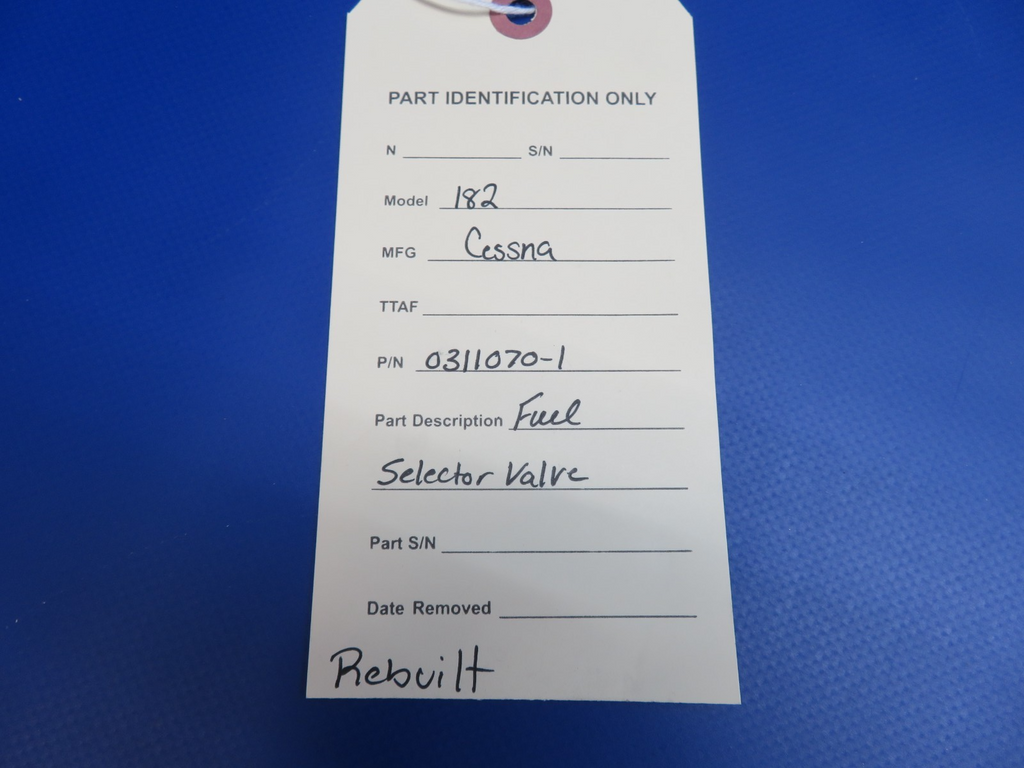 PART IDENTIFICATION ONLY
N S/N
Model 182
MFG Cessna
TTAF
P/N 0311070-1
Part Description Fuel
Selector Valve
Part S/N
Date Removed
Rebuilt